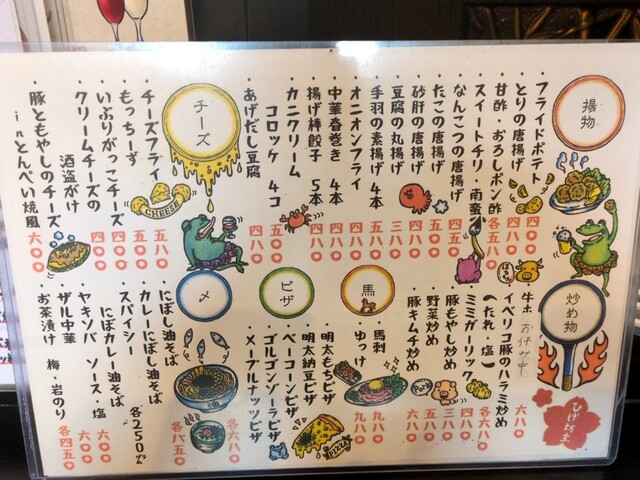 揚物
フライドポテト 四〇〇
とりの唐揚げ 四八〇
甘酢・おろしポン酢
スイートチリ・南蛮 各五八〇
なんこつの唐揚げ 四五〇
たこの唐揚げ 五八〇
砂肝の唐揚げ 四八〇
豆腐の丸揚げ 三八〇
手羽の素揚げ 4本 五八〇
オニオンフライ 四八〇
中華春巻き 4本 四八〇
揚げ棒餃子 5本 四八〇
カニクリーム
コロッケ 4コ 五八〇
あげだし豆腐 四八〇
チーズ
CHEESE
チーズフライ 五八〇
もっちーず 四八〇
いぶりがっこチーズ 四〇〇
クリームチーズの
酒盗がけ 四八〇
豚ともやしのチーズ
inとんぺい焼風 六〇〇
炒め物
牛ホ
イベリコ豚のハラミ炒め 六八〇
(たれ・塩) 各六八〇
ミミガーリック 四八〇
豚もやし炒め 三八〇
野菜炒め 五八〇
豚キムチ炒め 六八〇
ほるもん
Pork
馬
馬刺 九八〇
ゆっけ 九八〇
ピザ
明太もちピザ
明太納豆ピザ
ベーコンピザ
ゴルゴンゾーラピザ
メープルナッツピザ
各六八〇
PIZZA
〆
にぼし油そば
カレーにぼし油そば 各八五〇
スパイシー
にぼカレー油そば 各250g
ヤキソバ ソース、塩 六〇〇
ザル中華 六〇〇
お茶漬け 梅・岩のり 各四五〇
ひげ坊主